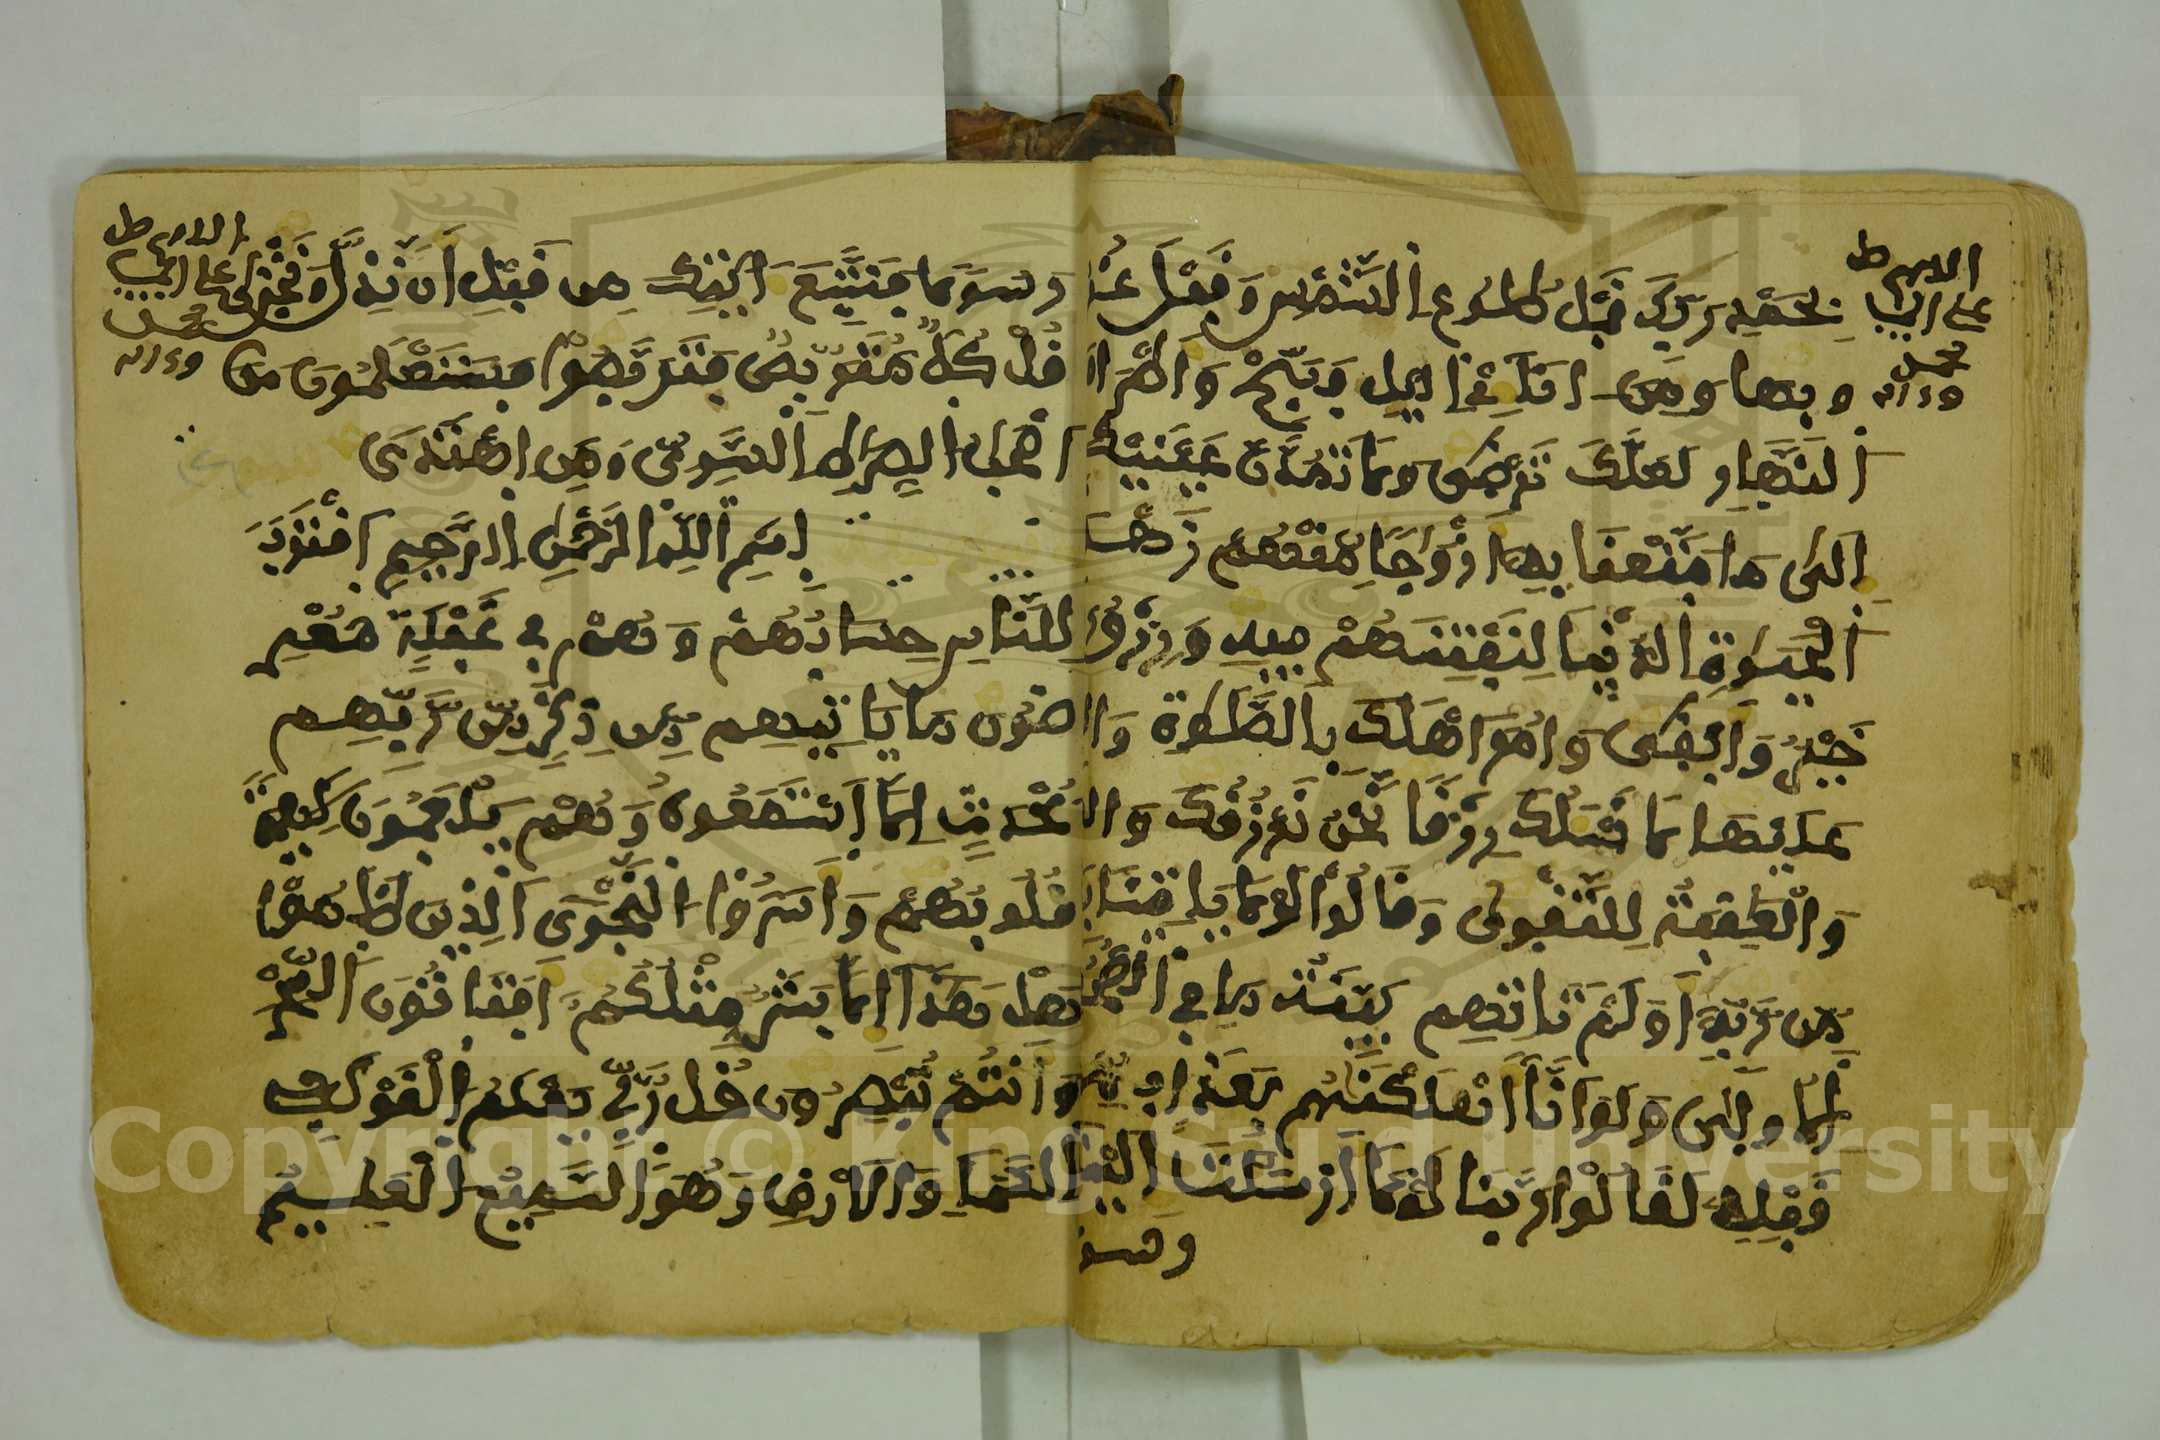 بِحَمْدِ رَبِّكَ قَبْلَ طُلُوعِ الشَّمْسِ وَقَبْلَ غُرُ
وبها وَمِنَ انَآئِ اليلِ فَسَبِّحْ وَأَطْرَافَ
النَّهَارِ لَعَلَّكَ تَرْضَى وَلَا تَمُدَّنَّ عَيْنَيْكَ
اِلَى مَا مَتَّعْنَا بِهِ أَزْوَاجًا مِّنْهُمْ زَهْرَ
الْحَيَوةِ الدُّنْيَا لِنَفْتِنَهُمْ فِيهِ وَرِزْقُ
خَيْرٌ وَأَبْقَى وَامُرَ اهْلَكَ بِالصَّلَوةِ وَا
عَلَيْهَا لَا نَسْئَلُكَ رِزْقًا نَّحْنُ نَرْزُقُكَ وَا
وَالْعَقِبَةُ لِلتَّقْوَى وَقَالُوا لَوْلَا يَاتِينَا بِ
مِّن رَّبِّهِ أَوَلَمْ تَاتِهِم بَيِّنَةُ مَا فِي الصُّحُ
الاولَى وَلَوَ انَّا أَهْلَكْنَهُم بِعَذَابٍ مِّن
قَبْلِهِ لَقَالُوا رَبَّنَا لَوْلَا أَرْسَلْتَ إِلَيْنَا
رَسُو
رَسُولًا فَنَتَّبِعَ ءَايَتِكَ مِن قَبْلِ أَن نَّذِلَّ وَنَخْزَى
قُلْ كُلٌّ مُّتَرَبِّصٌ فَتَرَبَّصُوا فَسَتَعْلَمُونَ مَنَ
اصْحَبُ الصِّرَطِ السَّوِيِّ وَمَنِ اهْتَدَى
بِسْمِ اللَّهِ الرَّحْمَنِ الرَّحِيمِ اقْتَرَبَ
لِلنَّاسِ حِسَابُهُمْ وَهُمْ فِي غَفْلَةٍ مُّعْرِ
ضُونَ مَا يَاتِيهِم مِّن ذِكْرٍ مِّن رَّبِّهِم
مُّحْدَثٍ اِلَّا اَسْتَمَعُوهُ وَهُمْ يَلْعَبُونَ لَاهِيَةً
قُلُوبُهُمْ وَأَسَرُّوا النَّجْوَى الَّذِينَ ظَلَمُوا
هَلْ هَذَا إِلَّا بَشَرٌ مِّثْلُكُمْ أَفَتَاتُونَ السِّحْرَ
وَأَنتُمْ تُبْصِرُونَ قُل رَّبِّي يَعْلَمُ الْقَوْلَ فِي
السَّمَاءِ وَالَارْضِ وَهُوَ السَّمِيعُ الْعَلِيمُ
Copyright © King Saud University